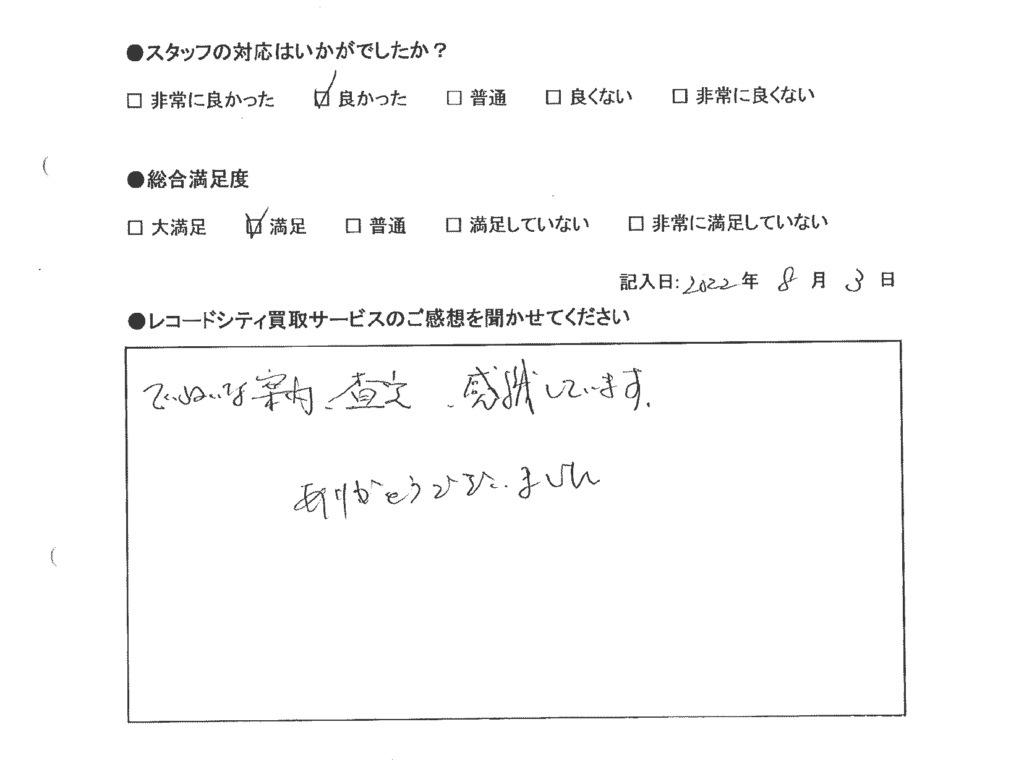 ●スタッフの対応はいかがでしたか？
□ 非常に良かった ☑ 良かった □ 普通 □ 良くない □ 非常に良くない
●総合満足度
□ 大満足 ☑ 満足 □ 普通 □ 満足していない □ 非常に満足していない
記入日:2022年 8月 3日
●レコードシティ買取サービスのご感想を聞かせてください
ていねいな案内、査定、感謝しています.
ありがとうございました